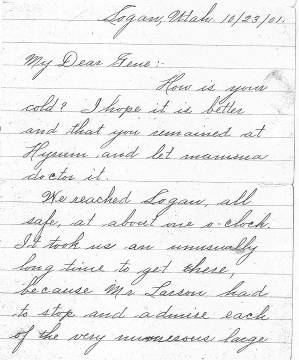 Logan, Utah. 10/23/01.
My Dear Gene:-
How is your
cold? I hope it is better
and that you remained at
Hyrum and let mamma
doctor it.
We reached Logan, all
safe, at about one o-clock.
It took us an unusually
long time to get there,
because Mr Larson had
to stop and admire each
of the very numerous large